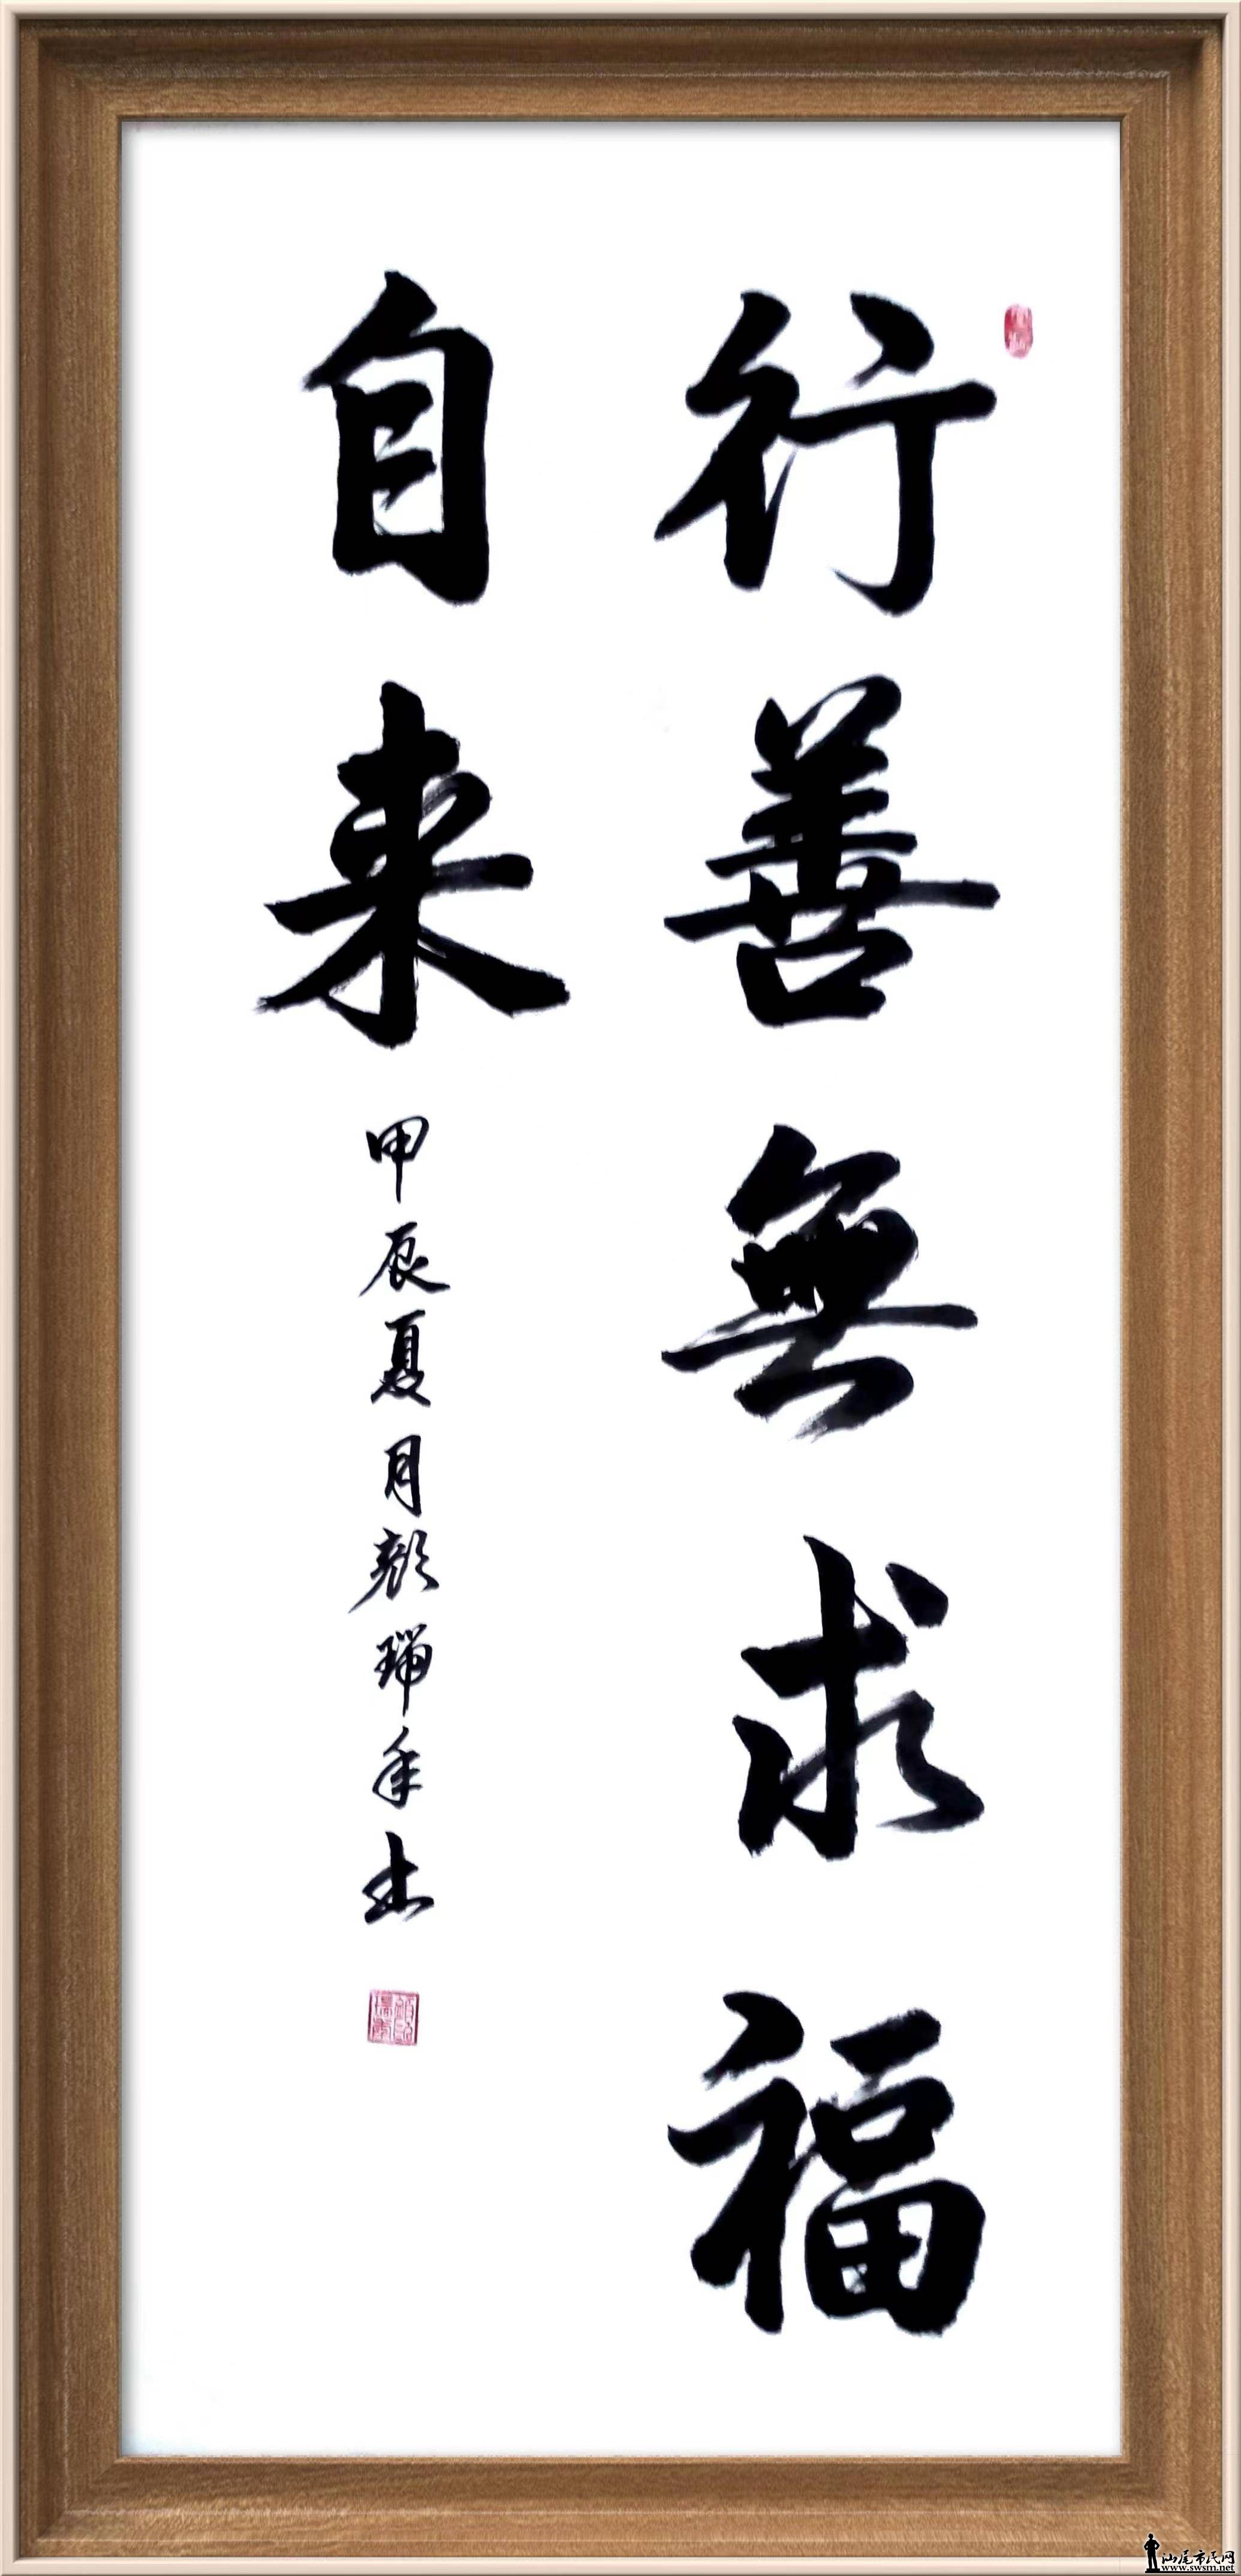 行善無求福
自来
甲辰夏月顏瑞年书
汕尾市民网
www.swsm.net